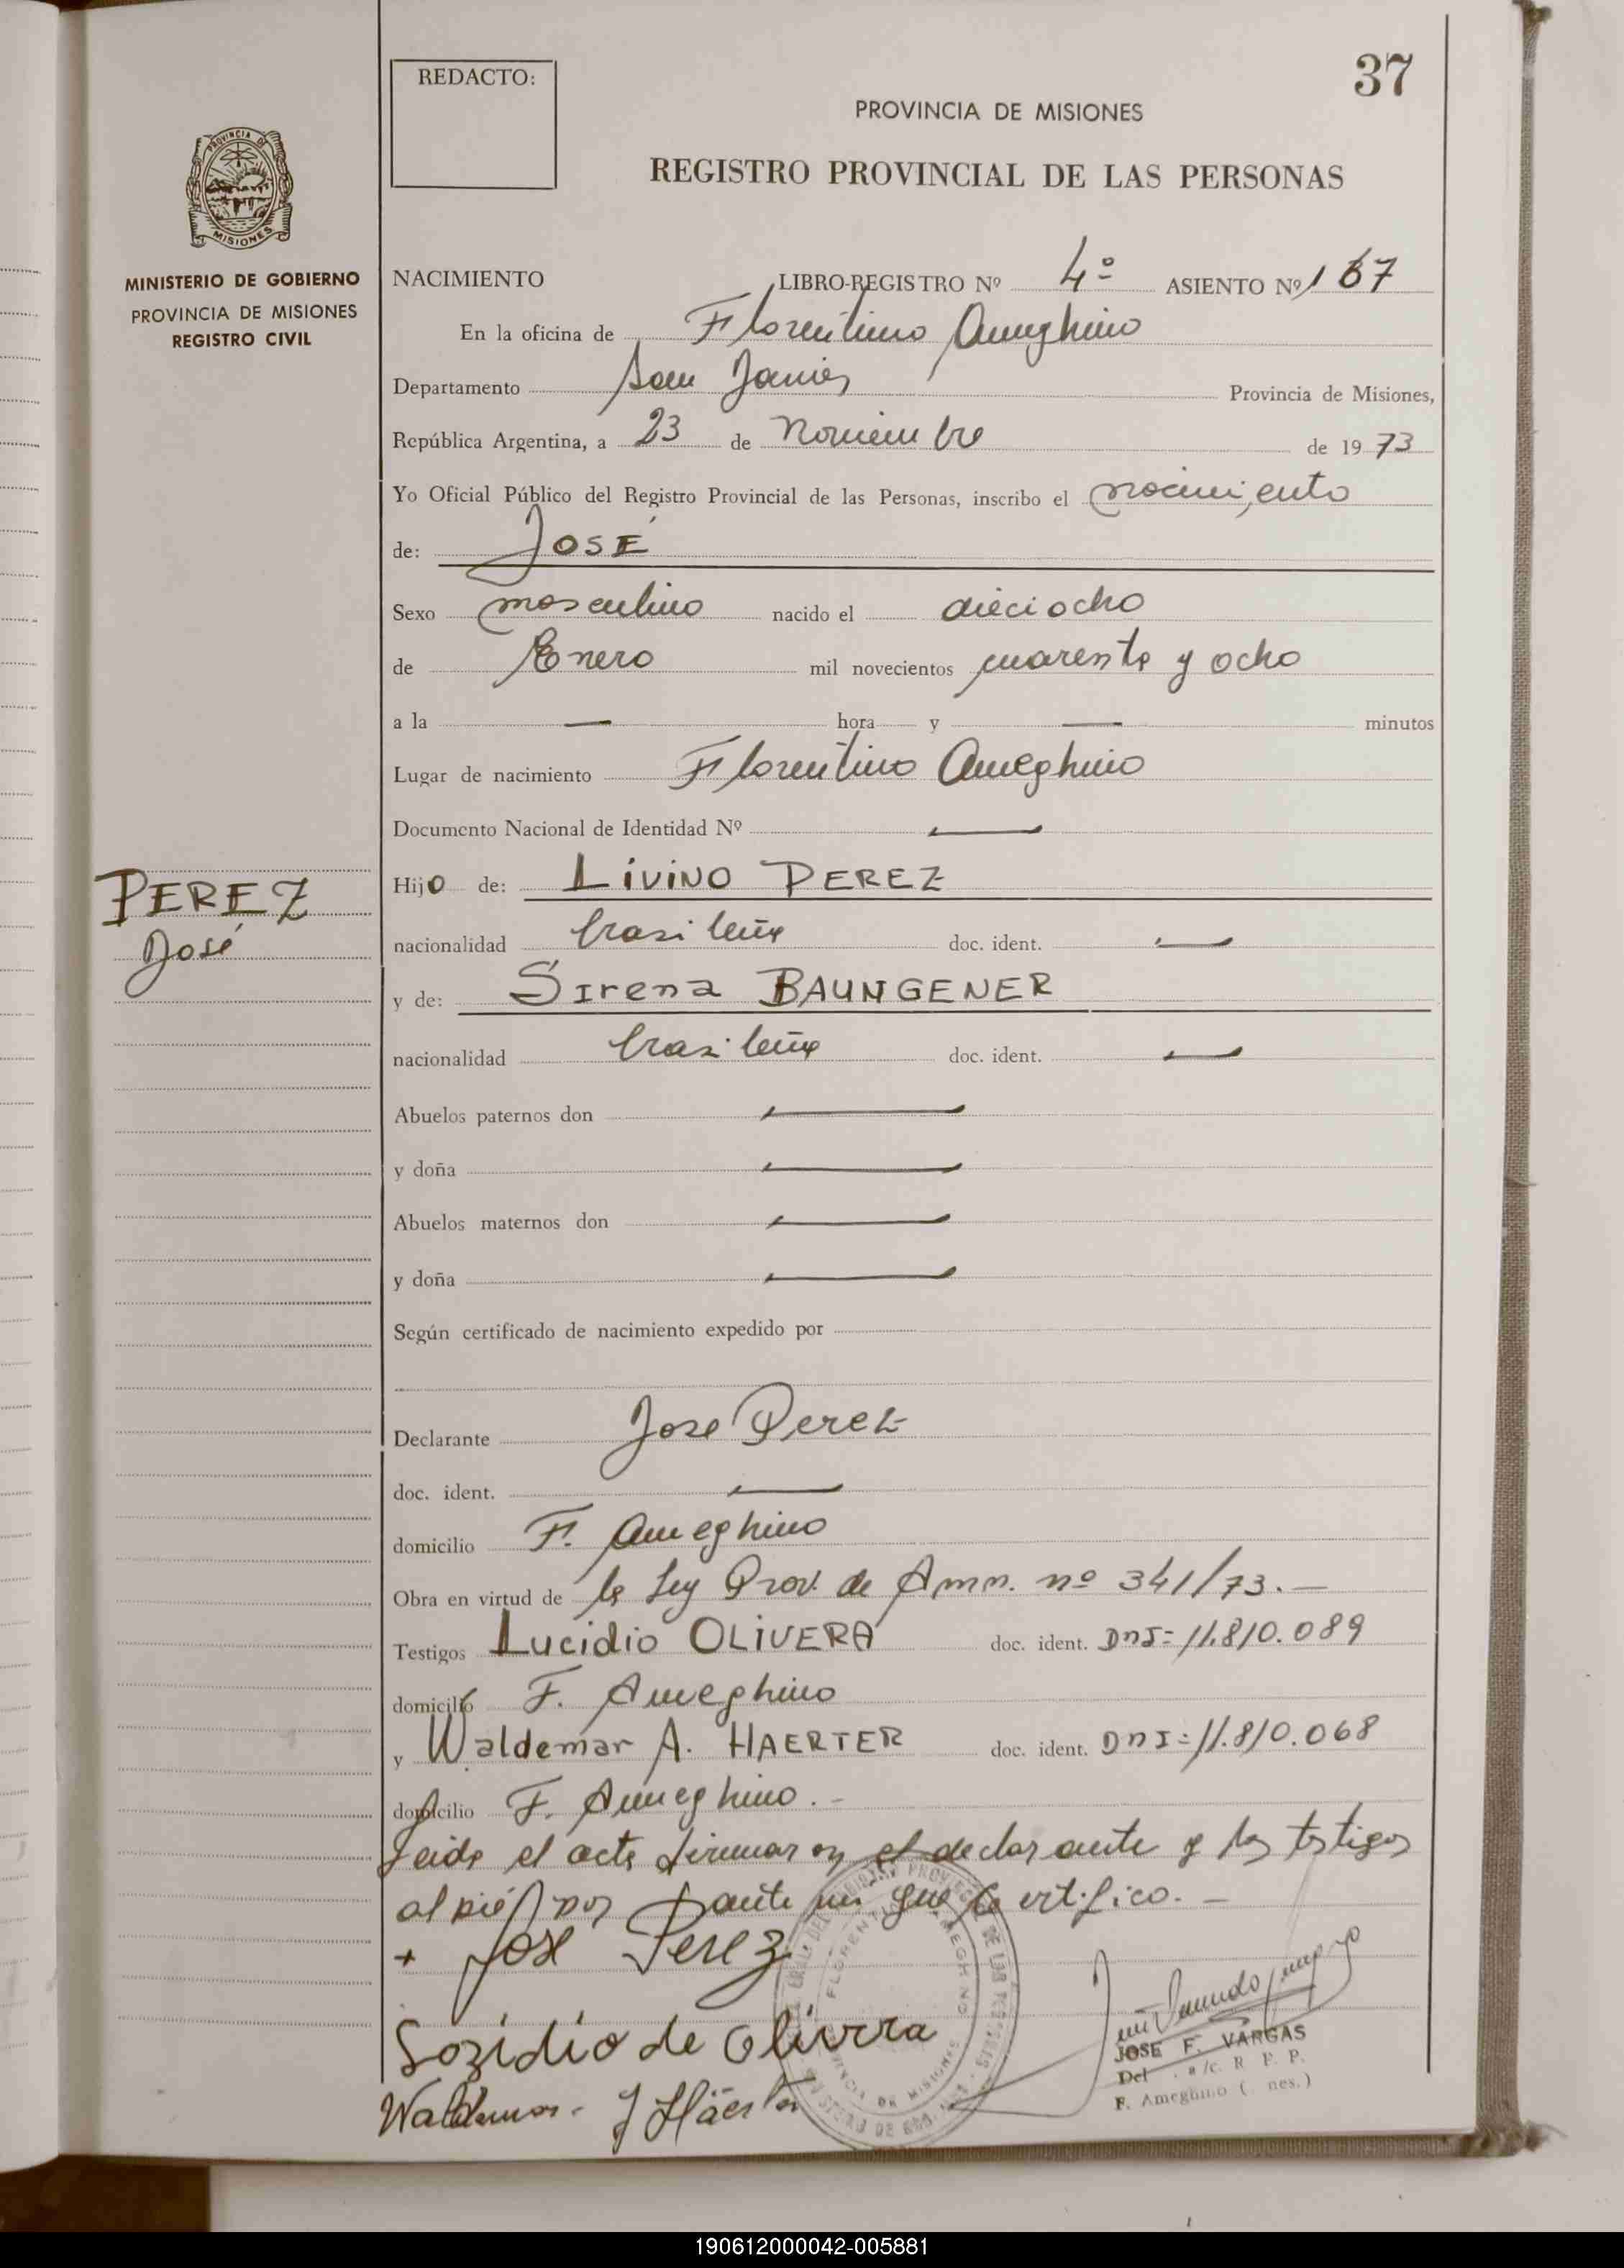 37
REDACTO:
PROVINCIA DE MISIONES
REGISTRO PROVINCIAL DE LAS PERSONAS
PROVINCIA DE
MISIONES
MINISTERIO DE GOBIERNO
PROVINCIA DE MISIONES
REGISTRO CIVIL
NACIMIENTO LIBRO-REGISTRO Nº 4º ASIENTO Nº 167
En la oficina de Florentino Ameghino
Departamento San Javier Provincia de Misiones,
República Argentina, a 23 de Noviembre de 1973
Yo Oficial Público del Registro Provincial de las Personas, inscribo el nacimiento
de: JOSÉ
Sexo masculino nacido el dieciocho
de Enero mil novecientos cuarenta y ocho
a la — hora y — minutos
Lugar de nacimiento Florentino Ameghino
Documento Nacional de Identidad Nº —
PEREZ
José
Hijo de: Livino PEREZ
nacionalidad brasileña doc. ident. —
y de: Sirena BAUNGENER
nacionalidad brasileña doc. ident. —
Abuelos paternos don —
y doña —
Abuelos maternos don —
y doña —
Según certificado de nacimiento expedido por
Declarante Jose Perez
doc. ident. —
domicilio F. Ameghino
Obra en virtud de la Ley Prov. de Amn. nº 341/73.—
Testigos Lucidio OLIVERA doc. ident. DNI= 11.810.089
domicilio F. Ameghino
y Waldemar A. HAERTER doc. ident. DNI= 11.810.068
domicilio F. Ameghino.-
Leida el acta firmaron el declarante y los testigos
al pié por ante mi que certifico.-
+ Jose Perez
Sozidio de Olivrra
Waldemar J Häerter
JOSE F. VARGAS
Del a/c. R. P. P.
F. Ameghino ( nes.)
190612000042-005881